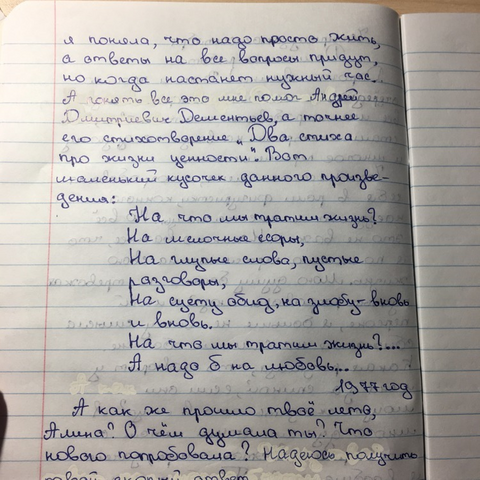 я поняла, что надо просто жить,
а ответы на все вопросы придут,
но когда настанет нужный час.
А понять все это мне помог Андрей
Дмитриевич Дементьев, а точнее
его стихотворение „Два стиха
про жизни ценности". Вот
маленький кусочек данного произве-
дения:
На что мы тратим жизнь?
На мелочные ссоры,
На глупые слова, пустые
разговоры,
На суету обид, на злобу - вновь
и вновь.
На что мы тратим жизнь?...
А надо б на любовь...
1977 год
А как же прошло твоё лето,
Алина? О чём думала ты? Что
нового попробовала? Надеюсь, получить
скорый ответ